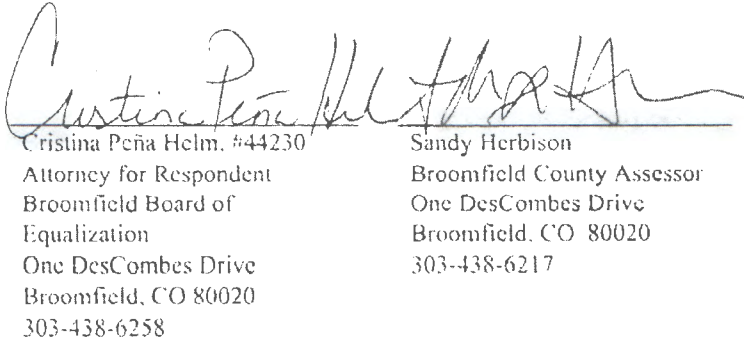 Cristina Peña Helm
Cristina Peña Helm, #44230
Attorney for Respondent
Broomfield Board of
Equalization
One DesCombes Drive
Broomfield, CO 80020
303-438-6258
Sandy Herbison
Broomfield County Assessor
One DesCombes Drive
Broomfield, CO 80020
303-438-6217